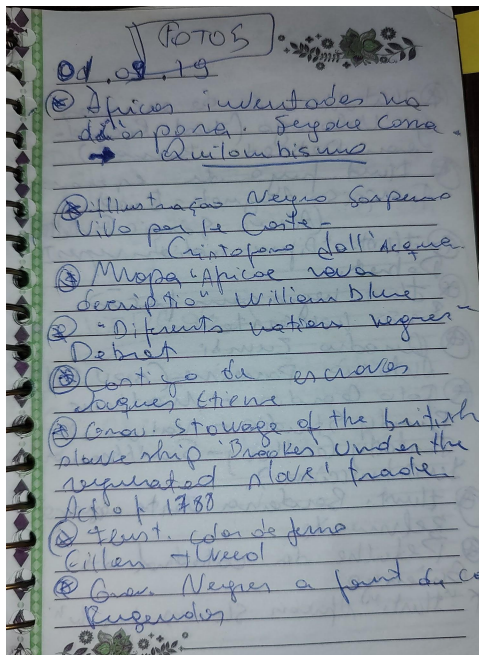 FOTOS
01.09.19
Africas inventadas na
diáspora. Segone Cona.
→ Quilombismo
Illustração Negro Suspenso
Vivo por le Coste -
Cristofano dall'Acqua.
Mapa "Africae nova
descriptio" William Blue
"Diferents nations negres"
Debret
Castigo de escravos
Jaques Etiene
Grav: Stowage of the british
slave ship 'Brookes' under the
regulated slave trade
Act of 1788
Ilust. colar de ferro
+ Weed
Grav. Negres a fond du ca
Rugendas